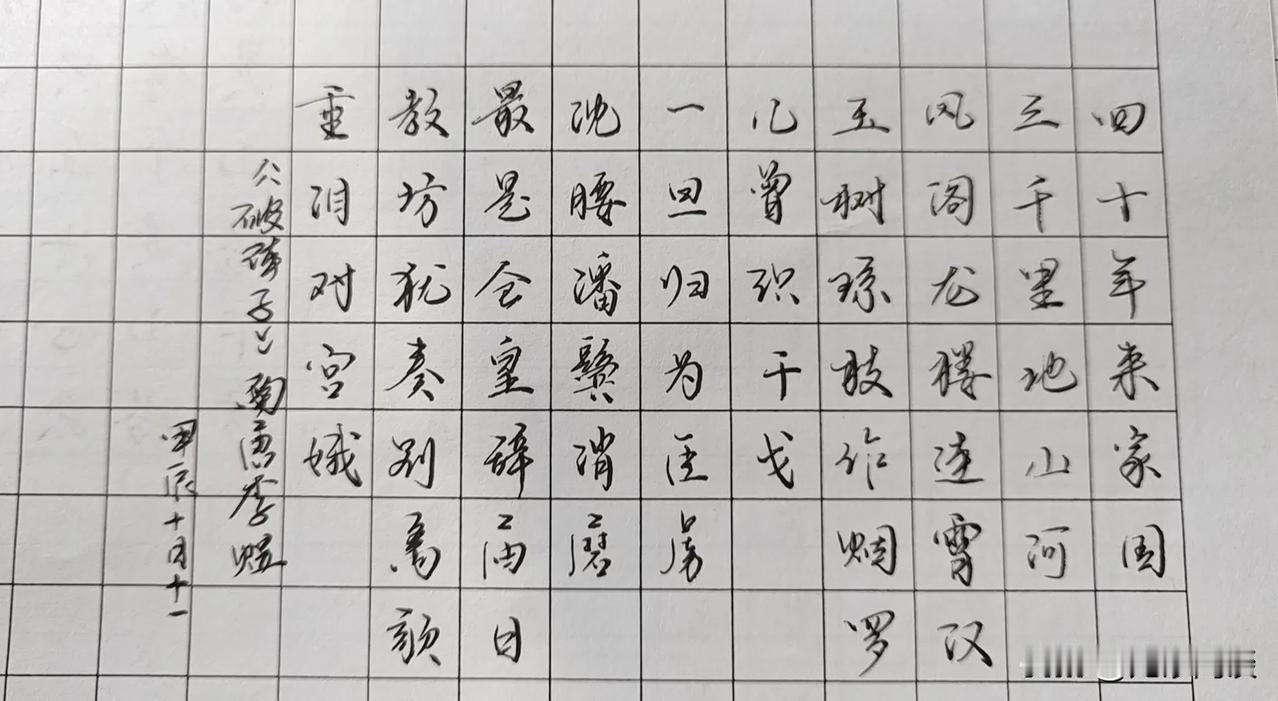 四十年来家国
三千里地山河
凤阁龙楼连霄汉
玉树琼枝作烟罗
几曾识干戈
一旦归为臣虏
沈腰潘鬓消磨
最是仓皇辞庙日
教坊犹奏别离歌
垂泪对宫娥
《破阵子》南唐李煜
甲辰十月十一